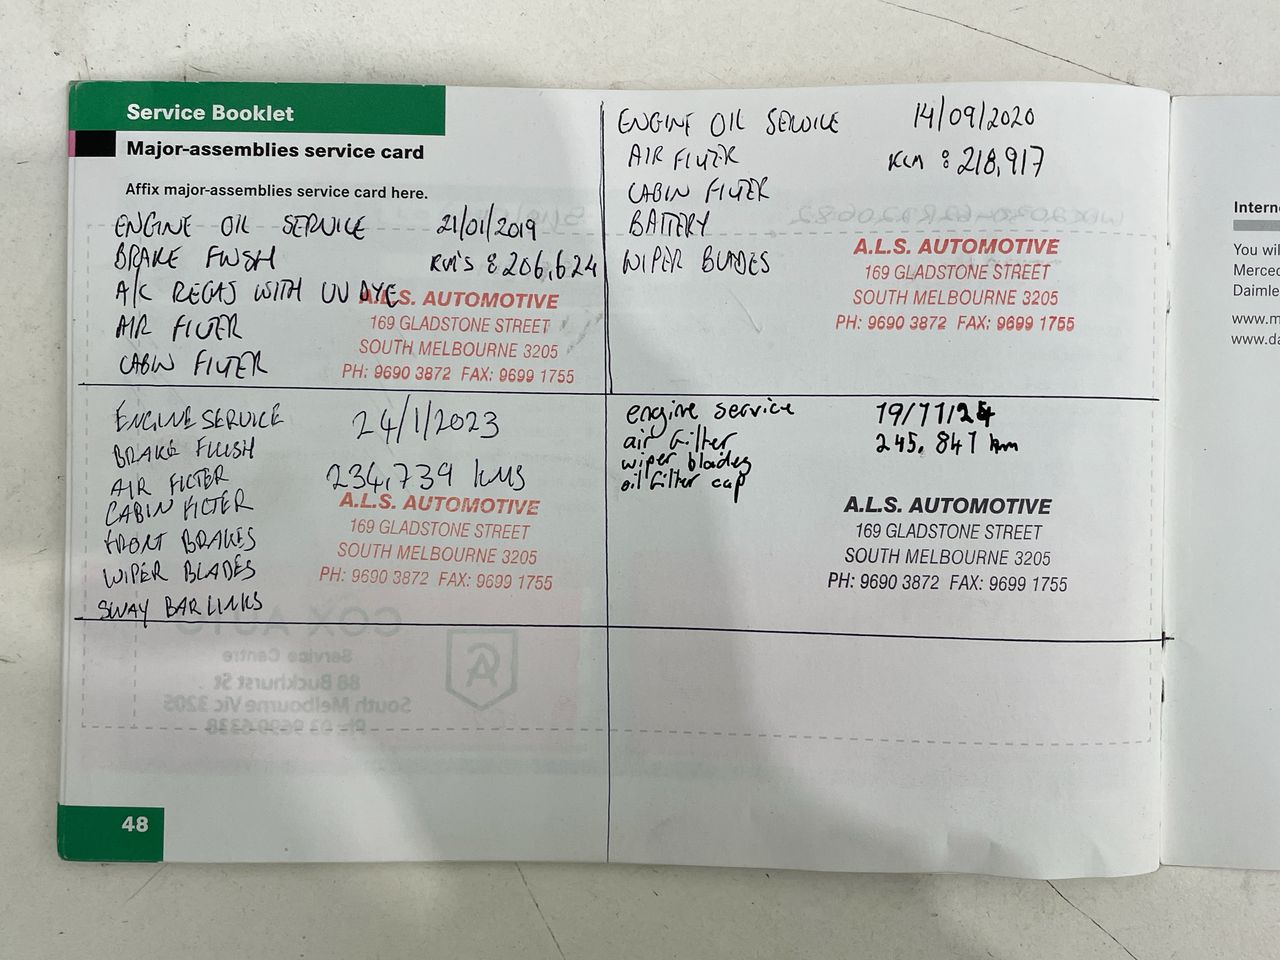 Service Booklet
Major-assemblies service card
Affix major-assemblies service card here.
ENGINE OIL SERVICE 21/01/2019
BRAKE FLUSH KM'S : 206,624
A/C REGAS WITH UV DYE
AIR FILTER
CABIN FILTER
A.L.S. AUTOMOTIVE
169 GLADSTONE STREET
SOUTH MELBOURNE 3205
PH: 9690 3872 FAX: 9699 1755
ENGINE OIL SERVICE 14/09/2020
AIR FILTER KM : 218,917
CABIN FILTER
BATTERY
WIPER BLADES
A.L.S. AUTOMOTIVE
169 GLADSTONE STREET
SOUTH MELBOURNE 3205
PH: 9690 3872 FAX: 9699 1755
ENGINE SERVICE 24/1/2023
BRAKE FLUSH
AIR FILTER 234,739 KMS
CABIN FILTER
FRONT BRAKES
WIPER BLADES
SWAY BAR LINKS
A.L.S. AUTOMOTIVE
169 GLADSTONE STREET
SOUTH MELBOURNE 3205
PH: 9690 3872 FAX: 9699 1755
engine service 19/11/24
air filter 245.841 km
wiper blades
oil filter cap
A.L.S. AUTOMOTIVE
169 GLADSTONE STREET
SOUTH MELBOURNE 3205
PH: 9690 3872 FAX: 9699 1755
COX AUTO
Service Centre
88 Buckhurst St
South Melbourne Vic 3205
48
You